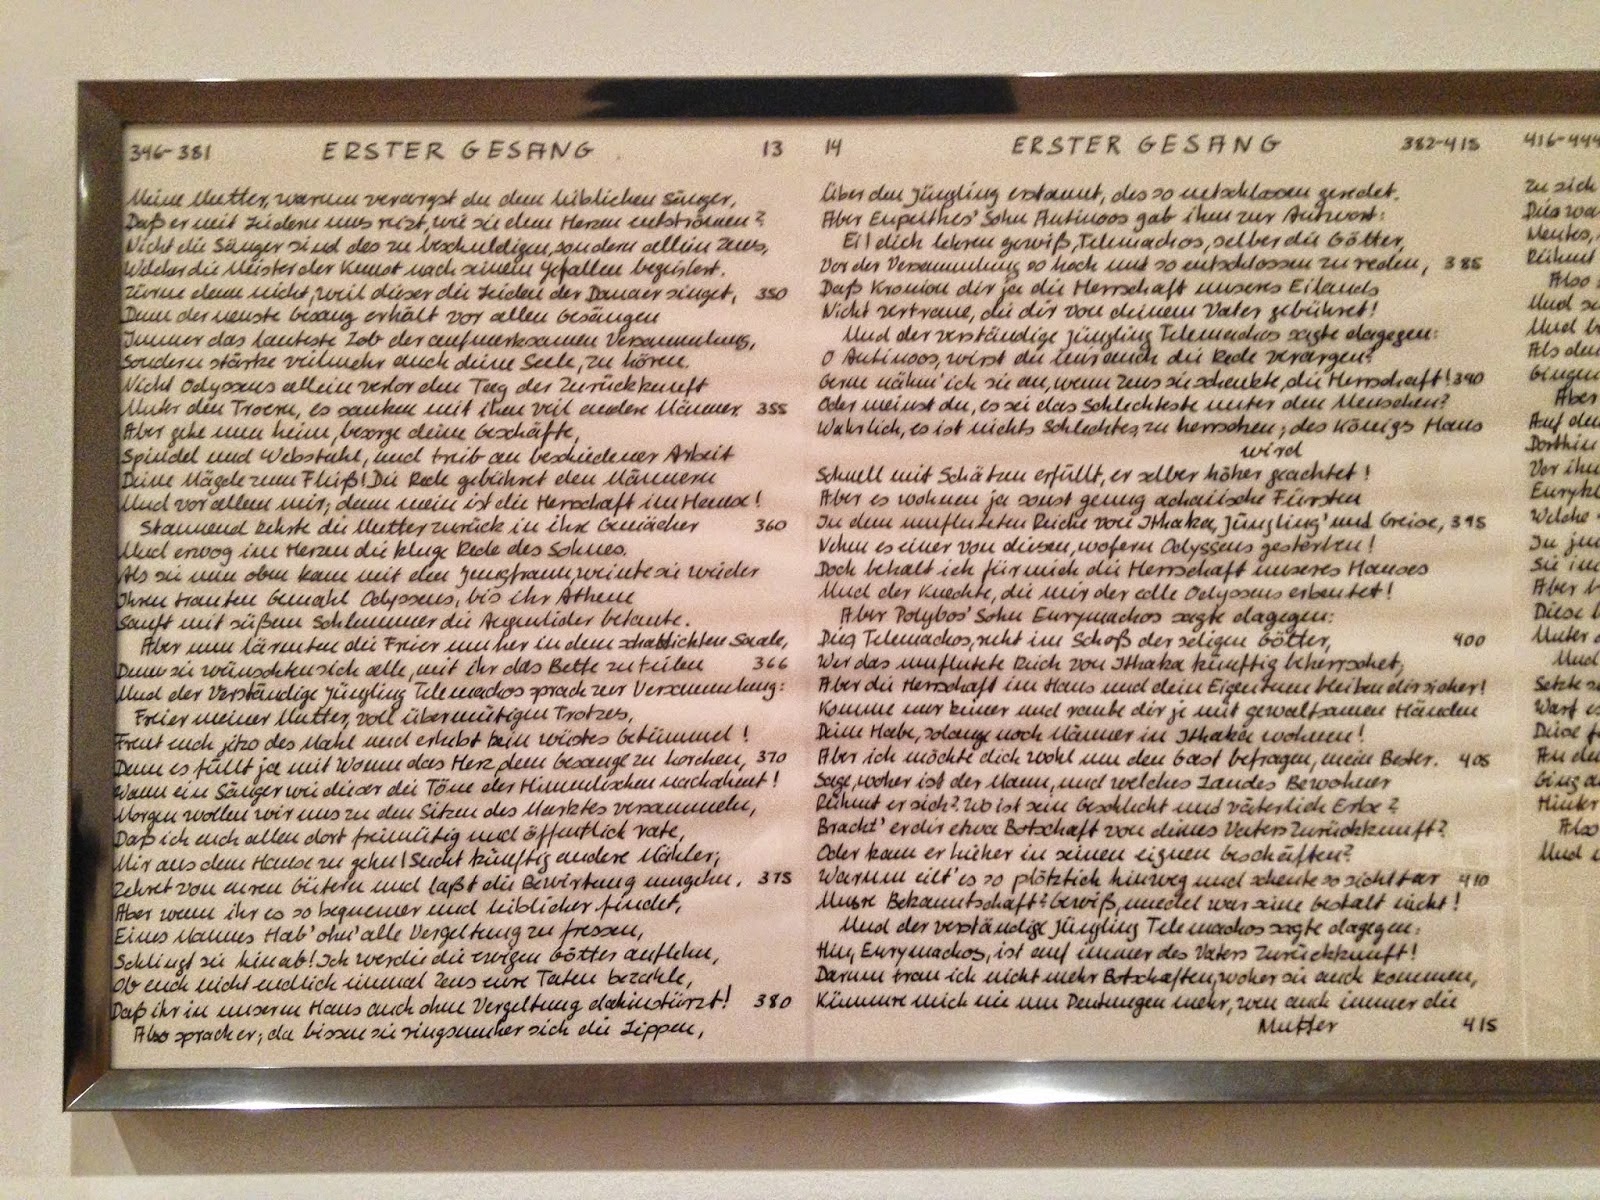 346-381 ERSTER GESANG 13
Meine Mutter, warum verargst du dem lieblichen Sänger,
Daß er mit Liedern uns reizt, wie sie dem Herzen entströmen?
Nicht die Sänger sind des zu beschuldigen, sondern allein Zeus,
Welcher die Meister der Kunst nach seinem Gefallen begeistert.
Zürne denn nicht, weil dieser die Leiden der Danaer singet, 350
Denn der neuste Gesang erhält vor allen Gesängen
Immer das lauteste Lob der aufmerksamen Versammlung,
Sondern stärke vielmehr auch deine Seele, zu hören.
Nicht Odysseus allein verlor den Tag der Zurückkunft
Unter den Troern, es sanken mit ihm viel andere Männer. 355
Aber gehe nun heim, besorge deine Geschäfte,
Spindel und Webstuhl, und treib an beschiedener Arbeit
Deine Mägde zum Fleiß! Die Rede gebühret den Männern
Und vor allem mir; denn mein ist die Herrschaft im Hause!
Staunend kehrte die Mutter zurück in ihre Gemächer 360
Und erwog im Herzen die kluge Rede des Sohnes.
Als sie nun oben kam mit den Jungfraun, weinte sie wieder
Ihren trauten Gemahl Odysseus, bis ihr Athene
Sanft mit süßem Schlummer die Augenlider betaute.
Aber nun lärmten die Freier umher in dem schattichten Saale,
Denn sie wünschten sich alle, mit ihr das Bette zu teilen 366
Und der verständige Jüngling Telemachos sprach zur Versammlung:
Freier meiner Mutter, voll übermütigen Trotzes,
Freut euch jetzo des Mahl und erhebt kein wüstes Getümmel!
Denn es füllt ja mit Wonne das Herz, dem Gesange zu horchen, 370
Wann ein Sänger wie dieser die Töne der Himmlischen nachahmt!
Morgen wollen wir uns zu den Sitzen des Marktes versammeln,
Daß ich euch allen dort freimütig und öffentlich rate,
Mir aus dem Hause zu gehn! Sucht künftig andere Mähler;
Zehret von euren Gütern und laßt die Bewirtung umgehn. 375
Aber wenn ihr es so bequemer und lieblicher findet,
Eines Mannes Hab' ohn' alle Vergeltung zu fressen,
Schlingt sie hinab! Ich werde die ewigen Götter anflehn,
Ob euch nicht endlich einmal Zeus eure Taten bezahle,
Daß ihr in unserm Haus auch ohne Vergeltung dahinstürzt! 380
Also sprach er; da bissen sie ringsumher sich die Lippen,
14 ERSTER GESANG 382-415
Über den Jüngling erstaunt, des so entschlossen geredet.
Aber Eupeithes' Sohn Antinoos gab ihm zur Antwort:
Ei! dich lehren gewiß, Telemachos, selber die Götter,
Vor der Versammlung so hoch und so entschlossen zu reden, 385
Daß Kronion dir ja die Herrschaft unseres Eilands
Nicht vertraue, die dir von deinem Vater gebühret!
Und der verständige Jüngling Telemachos sagte dagegen:
O Antinoos, wirst du mir auch die Rede verargen?
Gerne nähm' ich sie an, wenn Zeus sie schenkte, die Herrschaft! 390
Oder meinst du, es sei das Schlechteste unter den Menschen?
Wahrlich, es ist nichts Schlechtes, zu herrschen; des Königs Haus
wird
Schnell mit Schätzen erfüllt, er selber höher geachtet!
Aber es wohnen ja sonst genug achaiische Fürsten
In dem umfluteten Reiche von Ithaka, Jüngling' und Greise, 395
Nehm es einer von diesen, wofern Odysseus gestorben!
Doch behalt ich für mich die Herrschaft unseres Hauses
Und der Knechte, die mir der edle Odysseus erbeutet!
Aber Polybos' Sohn Eurymachos sagte dagegen:
Dies, Telemachos, ruht im Schoß der seligen Götter, 400
Wer das umflutete Reich von Ithaka künftig beherrschet;
Aber die Herrschaft im Haus und dein Eigentum bleiben dir sicher!
Komme nur keiner und raube dir je mit gewaltsamen Händen
Deine Habe, solange noch Männer in Ithaka wohnen!
Aber ich möchte dich wohl um den Gast befragen, mein Bester. 405
Sage, woher ist der Mann, und welches Landes Bewohner
Rühmt er sich? Wo ist sein Geschlecht und väterlich Erbe?
Bracht' er dir etwa Botschaft von deines Vaters Zurückkunft?
Oder kam er hieher in seinen eignen Geschäften?
Warum eilt' es so plötzlich hinweg und scheute so sichtbar 410
Unsre Bekanntschaft? Gewiß, unedel war seine Gestalt nicht!
Und der verständige Jüngling Telemachos sagte dagegen:
Hin, Eurymachos, ist auf immer des Vaters Zurückkunft!
Darum trau ich nicht mehr Botschaften, woher sie auch kommen,
Kümmre mich nie um Deutungen mehr, wen auch immer die
Mutter 415
416-444
Zu sich
Dies war
Mentes,
Rühmt
Also
Und
Und
Als den
Gingen
Aber
Auf dem
Dorthin
Vor ihm
Eurykl
Welche
In
Sie im
Aber
Diese
Unter
Und
Setzte
Warf es
Diese
An der
Ging
Hinter
Also
Und